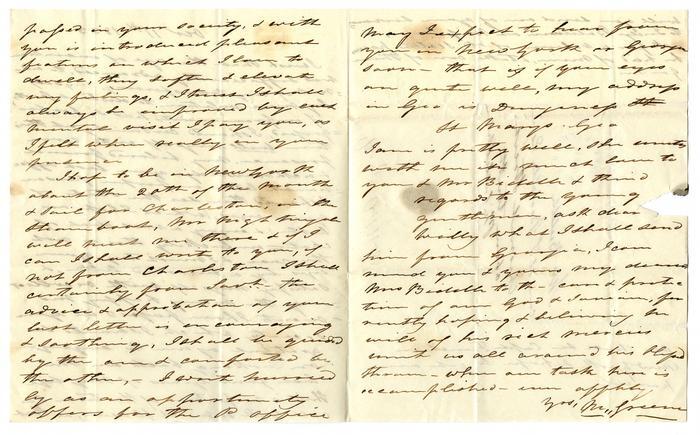 passed in your society, & with
you is introduced pleasant
features on which I love to
dwell, they soften & elevate
my feelings, & I trust I shall
always be improved by each
mental visit I pay you, as
I felt when really in your
presence
I hope to be in New York
about the 20th of the month
& sail for Charleston in the
steam boat, Mr Nightingale
will meet me there & if I
can I shall write to you, if
not from Charleston I shall
certainly from Savh. the
advice & approbation of your
last letter is encouraging
& soothing, I shall be guided
by the one & comforted by
the other, - I write hurried
ly as an opportunity
offers for the P office
May I expect to hear from
you in New York or Georgia
soon - that is if your eyes
are quite well, my address
in Geo is Dungeness
St Marys. Geo
is pretty well, She unites
with me in much love to
you & Mrs Biddle & kind
regards to the young
gentlemen, ask dear
Willy what I shall send
him from Georgia, I com
mend you & yours my dear
Mrs Biddle to the care & protec
tion of our God & Saviour, fer
vently hoping & believing he
will of his rich mercies
unite us all around his blessed
throne - when our task here is
accomplished - ever affly
Yrs, M., Greene